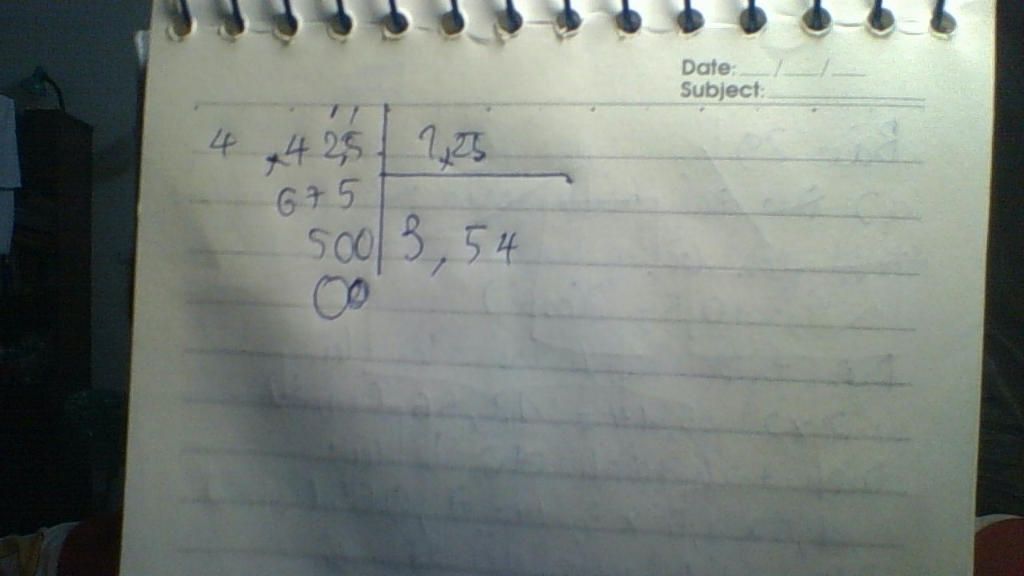 Date: __/__/__
Subject:
4,42,5 1,25
675
500 3,54
00